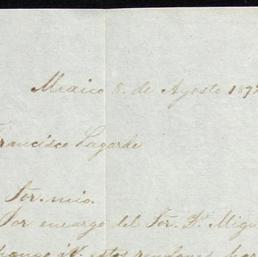 Mexico 8. de Agosto 189
Francisco Lagarde
Sor. mio.
Por encargo del Sor. Dn. Migu
estos renglones